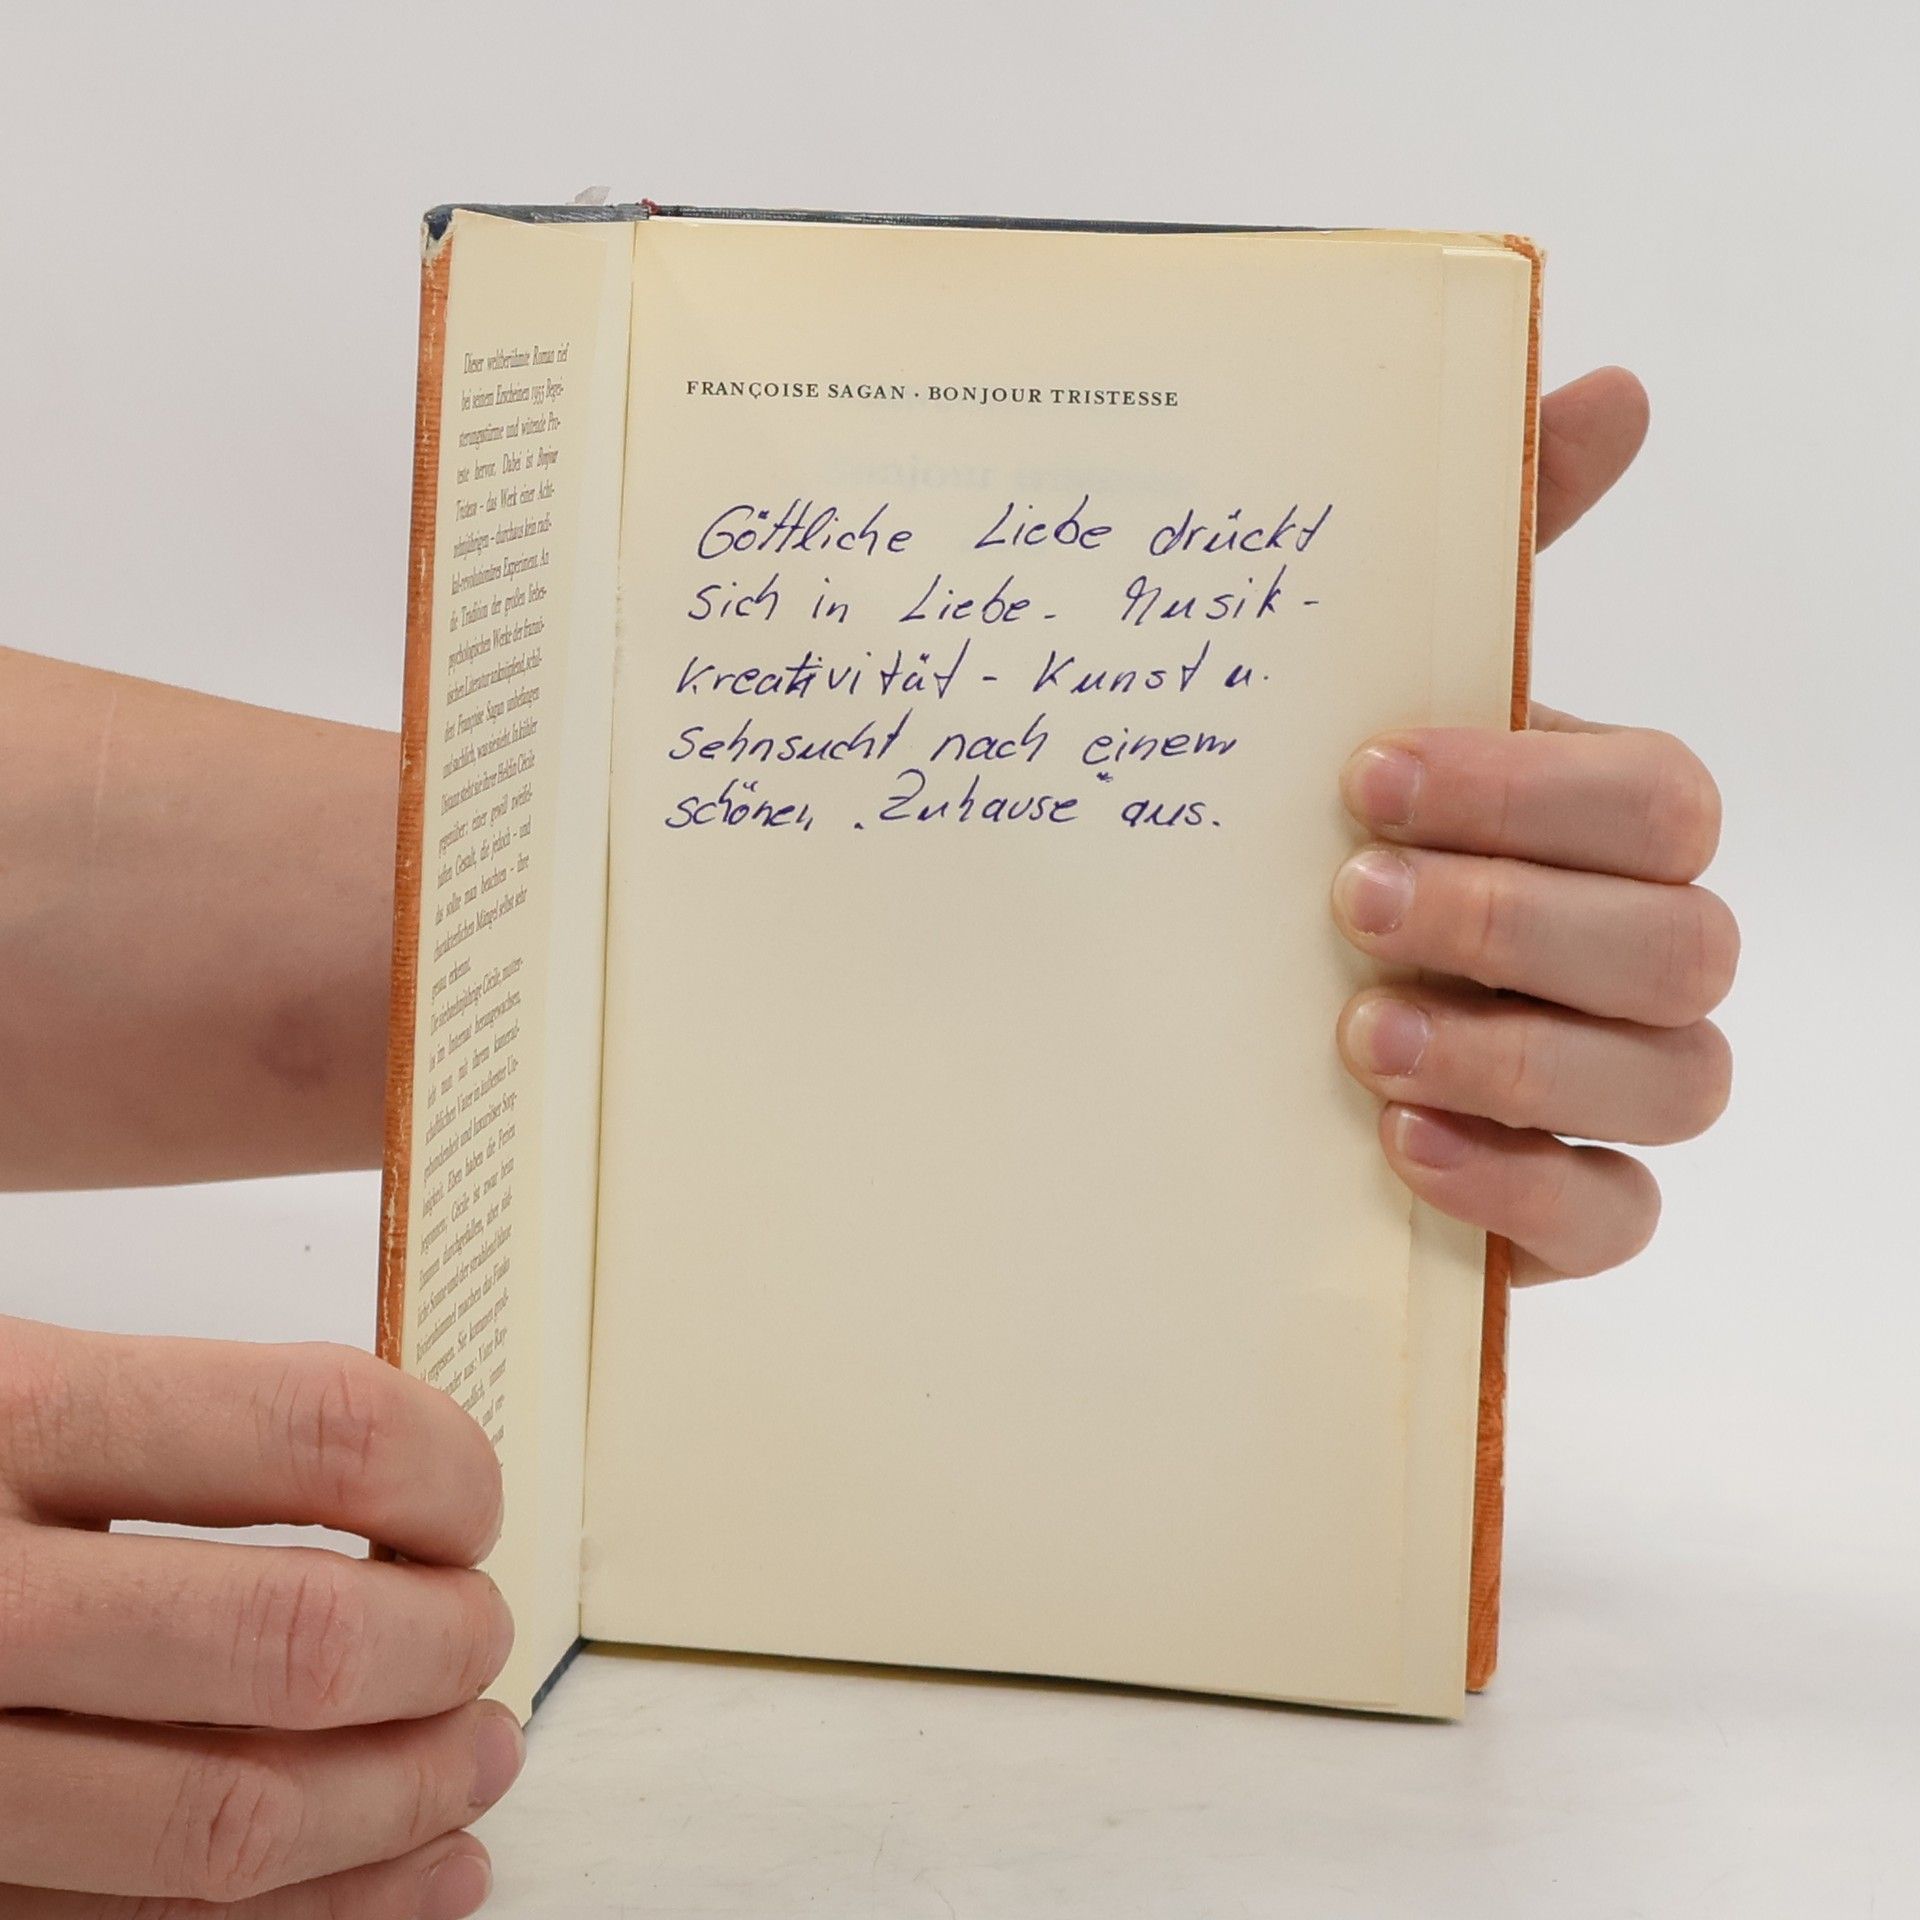 Dieser weltberühmte Roman rief
bei seinem Erscheinen 1955 Begei-
sterungsstürme und wütende Pro-
teste hervor. Dabei ist Bonjour
Tristesse – das Werk einer Acht-
zehnjährigen – durchaus kein radi-
kal-revolutionäres Experiment. An
die Tradition der großen liebes-
psychologischen Werke der franzö-
sischen Literatur anknüpfend, schil-
dert Françoise Sagan unbefangen
und sachlich, was sie sieht. In kühler
Distanz steht sie ihrer Heldin Cécile
gegenüber: einer gewiß zweifel-
haften Gestalt, die jedoch – und
das sollte man beachten – ihre
charakterlichen Mängel selbst sehr
genau erkennt.
Die siebzehnjährige Cécile, mutter-
los im Internat herangewachsen,
lebt nun mit ihrem kamerad-
schaftlichen Vater in äußerster Un-
gebundenheit und luxuriöser Sorg-
losigkeit. Eben haben die Ferien
begonnen; Cécile ist zwar beim
Examen durchgefallen, aber süd-
liche Sonne und der strahlend blaue
Rivierahimmel machen das Fiasko
vergessen. Sie kommen groß-
aus: Vater Ray-
immer
und
FRANÇOISE SAGAN · BONJOUR TRISTESSE
Göttliche Liebe drückt
sich in Liebe - Musik -
Kreativität - Kunst u.
Sehnsucht nach einem
schönen „Zuhause" aus.